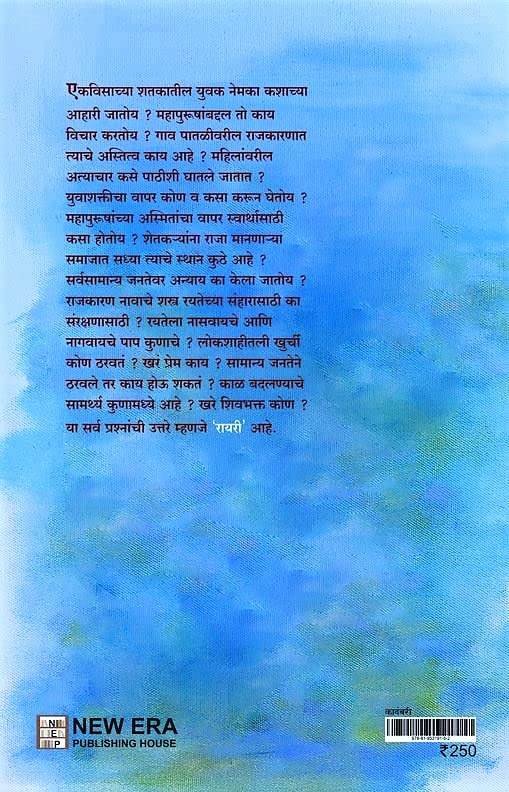 एकविसाच्या शतकातील युवक नेमका कशाच्या
आहारी जातोय ? महापुरूषांबद्दल तो काय
विचार करतोय ? गाव पातळीवरील राजकारणात
त्याचे अस्तित्व काय आहे ? महिलांवरील
अत्याचार कसे पाठीशी घातले जातात ?
युवाशक्तीचा वापर कोण व कसा करून घेतोय ?
महापुरूषांच्या अस्मितांचा वापर स्वार्थासाठी
कसा होतोय ? शेतकऱ्यांना राजा मानणाऱ्या
समाजात सध्या त्याचे स्थान कुठे आहे ?
सर्वसामान्य जनतेवर अन्याय का केला जातोय ?
राजकारण नावाचे शस्त्र रयतेच्या संहारासाठी का
संरक्षणासाठी ? रयतेला नासवायचे आणि
नागवायचे पाप कुणाचे ? लोकशाहीतली खुर्ची
कोण ठरवतं ? खरं प्रेम काय ? सामान्य जनतेने
ठरवले तर काय होऊ शकतं ? काळ बदलण्याचे
सामर्थ्य कुणामध्ये आहे ? खरे शिवभक्त कोण ?
या सर्व प्रश्नांची उत्तरे म्हणजे 'रायरी' आहे.
NEP
NEW ERA
PUBLISHING HOUSE
कादंबरी
₹250